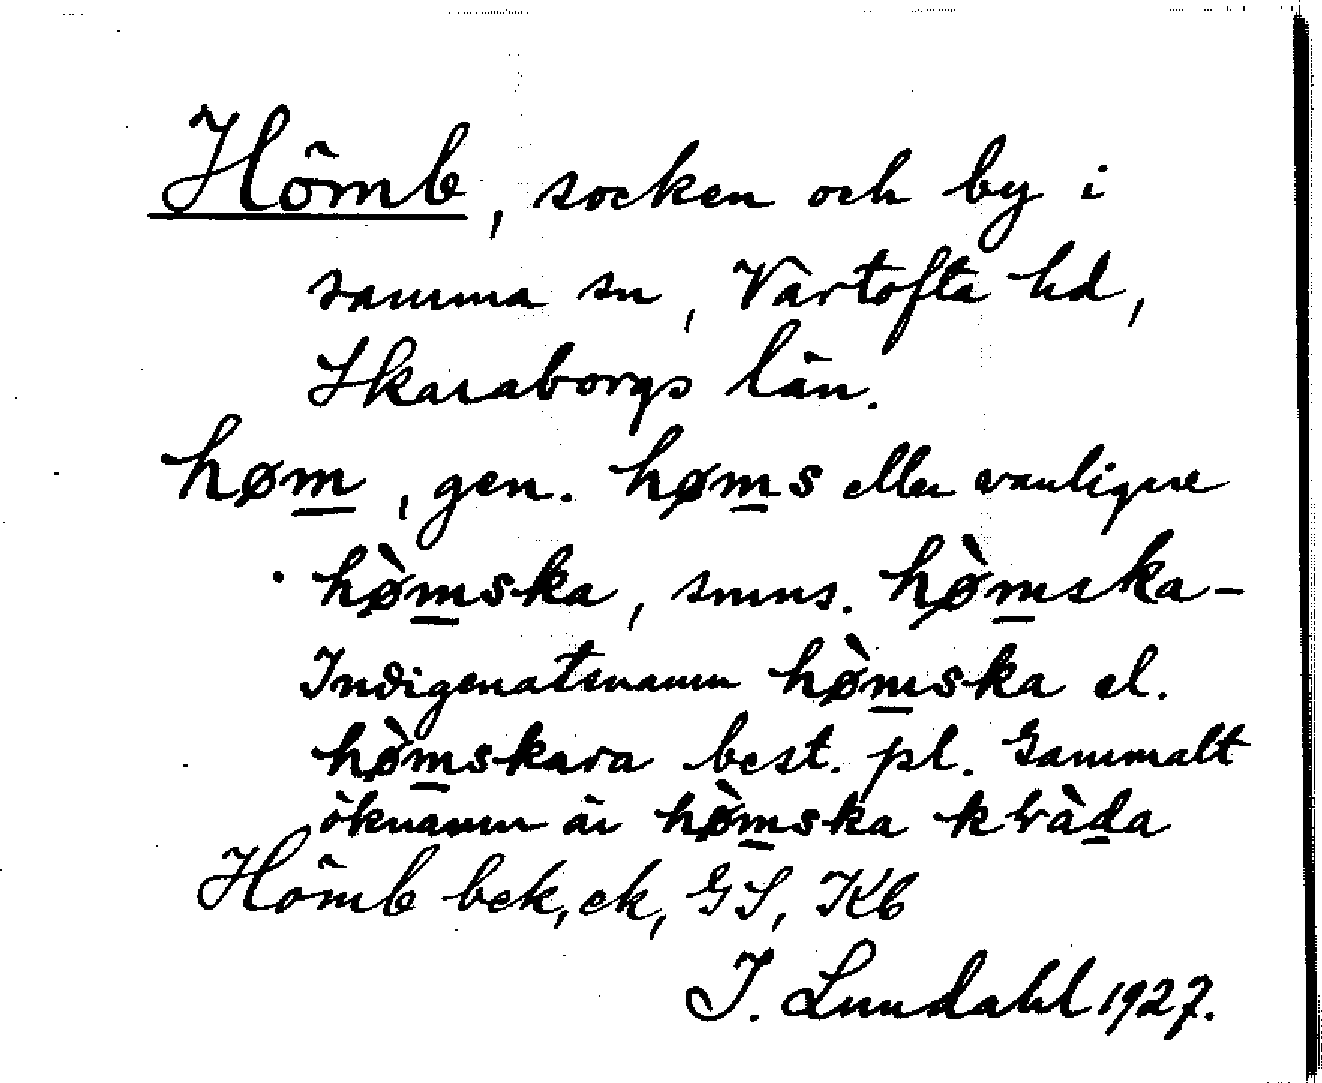 Hömb, socken och by i
samma sn, Vartofta hd,
Skaraborgs län.
høm, gen. høms eller vanligare
hø̀mska, smns. hø̀mska-
Indigenatsnamn hø̀mska el.
hø̀mskara best. pl. Gammalt
öknamn är hø̀mska
Hömb bek, ek, GS, Kb
I. Lundahl 1927.